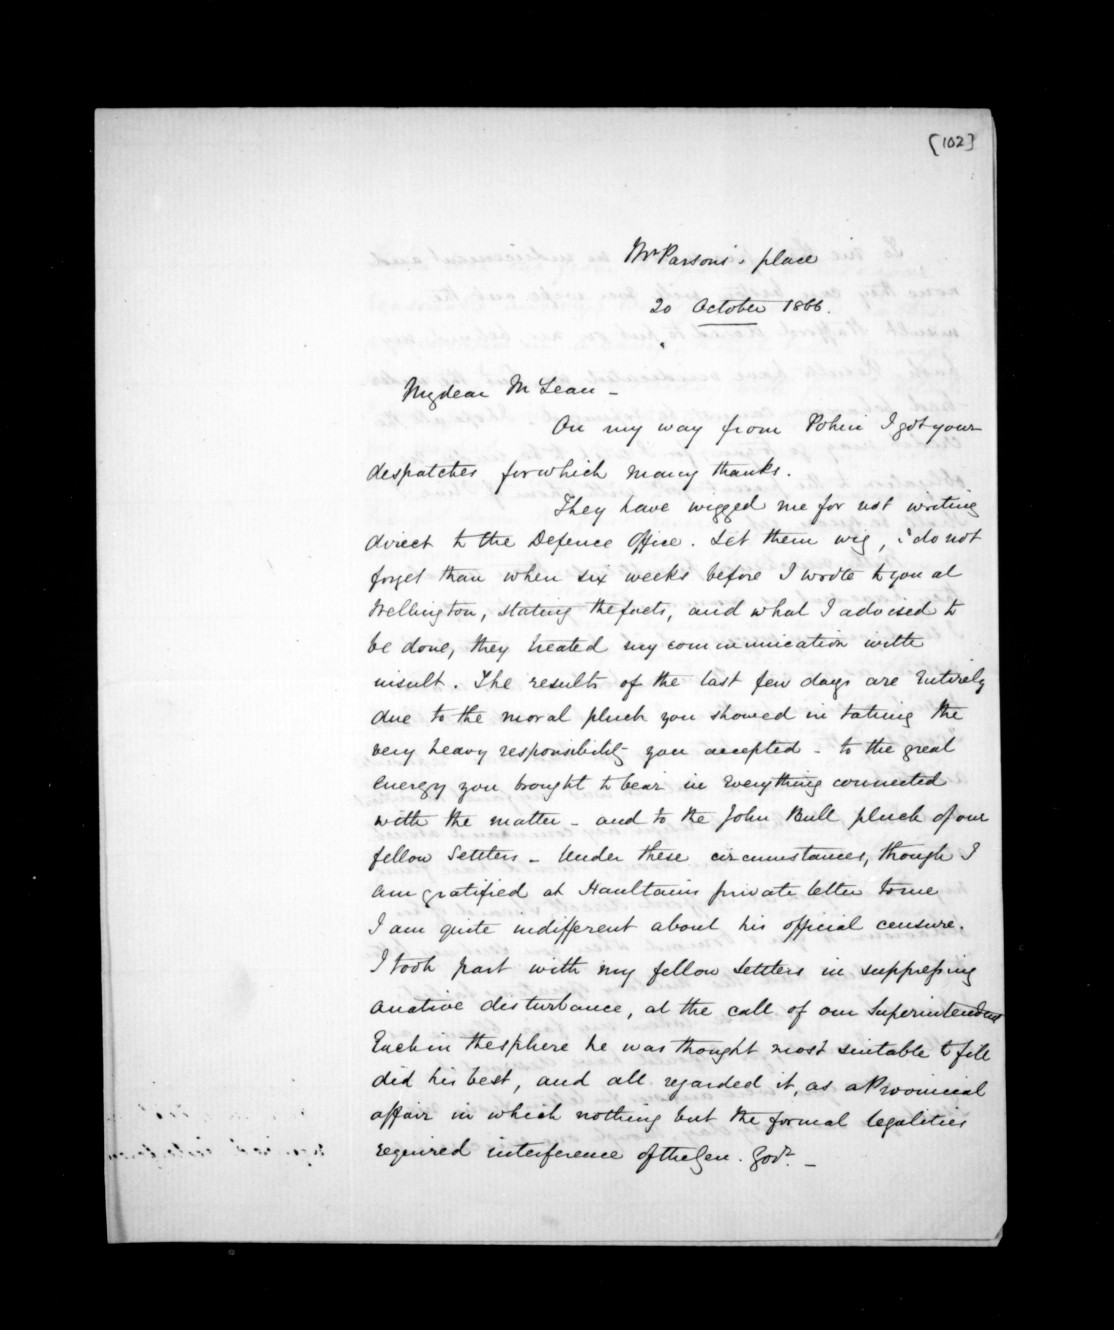 [102]
Mr Parsons's place
20 October 1866.
My dear McLean -
On my way from Pohui I got your
despatches for which many thanks.
They have wigged me for not writing
direct to the Defence Office. Let them wig, I do not
forget than when six weeks before I wrote to you at
Wellington, stating the facts, and what I advised to
be done, they treated my communication with
insult. The results of the last few days are entirely
due to the moral pluck you showed in taking the
very heavy responsibility you accepted - to the great
energy you brought to bear in everything connected
with the matter - and to the John Bull pluck of our
fellow Settlers - Under these circumstances, though I
am gratified at Haultains private letter to me
I am quite indifferent about his official censure.
I took part with my fellow settlers in suppressing
a native disturbance, at the call of our Superintendent
Each in the sphere he was thought most suitable to fill
did his best, and all regarded it, as a Provincial
affair in which nothing but the formal legalities
required interference of the Gen. Govt. -